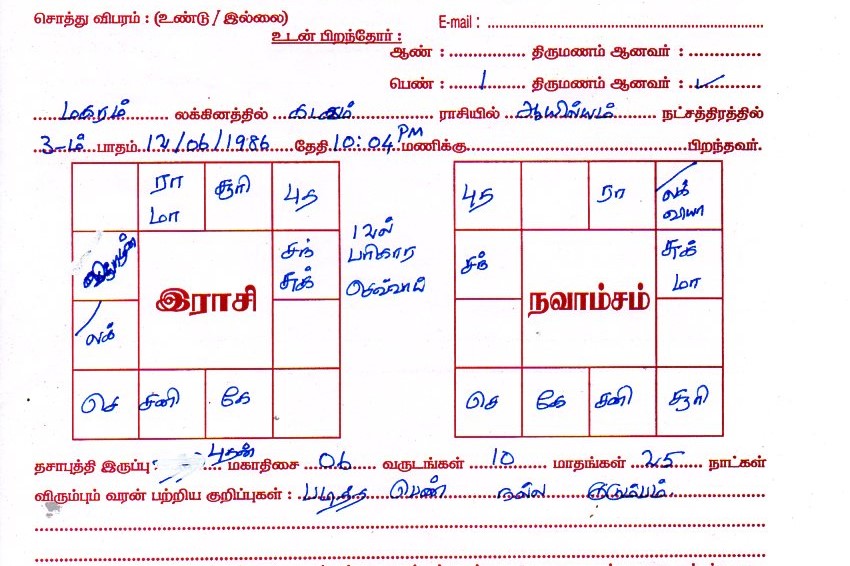 சொத்து விபரம் : (உண்டு / இல்லை) E-mail :
உடன் பிறந்தோர் :
ஆண் : திருமணம் ஆனவர் :
பெண் : 1 திருமணம் ஆனவர் : ✓
மகரம் லக்கினத்தில் கடகம் ராசியில் ஆயில்யம் நட்சத்திரத்தில்
3-ம் பாதம் 12/06/1986 தேதி 10:04 PM மணிக்கு பிறந்தவர்.
ரா மா சூரி புத
சந் சுக்
இராசி
லக்
செ சனி கே
12ல் பரிகார செவ்வாய்
புத ரா லக் வியா
சந் சுக் மா
நவாம்சம்
செ கே சனி சூரி
தசாபுத்தி இருப்பு : புதன் மகாதிசை 06 வருடங்கள் 10 மாதங்கள் 25 நாட்கள்
விரும்பும் வரன் பற்றிய குறிப்புகள் : படித்த பெண் நல்ல குடும்பம்.